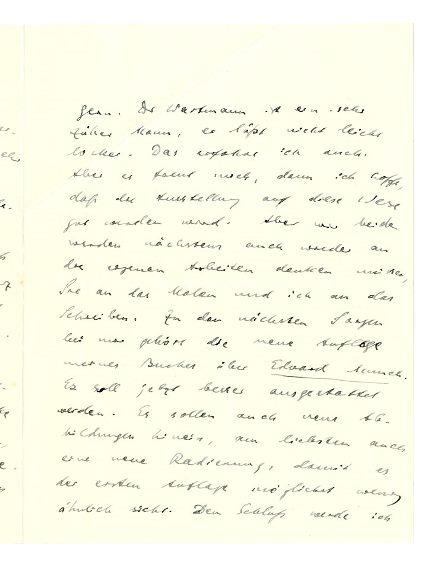 gern. Dr Wartmann ist ein sehr
zäher Mann, er läßt nicht leicht
locker. Das erfahre ich auch.
Aber es freut mich, denn ich hoffe,
daß die Ausstellung auf diese Weise
gut werden wird. Aber wir beide
werden nächstens auch wieder an
die eigenen Arbeiten denken müssen,
Sie an das Malen und ich an das
Schreiben. Zu den nächsten Sorgen
bei mir gehört die neue Auflage
meines Buches über Edvard Munch.
Es soll jetzt besser ausgestattet
werden. Es sollen auch neue Ab-
bildungen hinein, am liebsten auch
eine neue Radierung, damit es
der ersten Auflage möglichst wenig
ähnlich sieht. Den Schluß werde ich